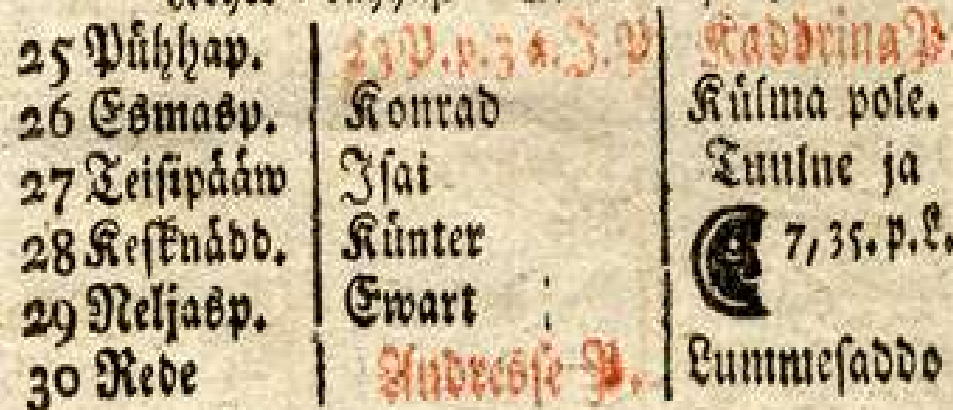 25 Pühhap. 23 P. p. 3 a. J. P Kaddrina P.
26 Esmasp. Konrad Külma pole.
27 Teisipääw Isai Tuulne ja
28 Kesknädd. Künter 7, 35. p. L.
29 Neljasp. Ewart
30 Rede Andresse P. Lummesaddo